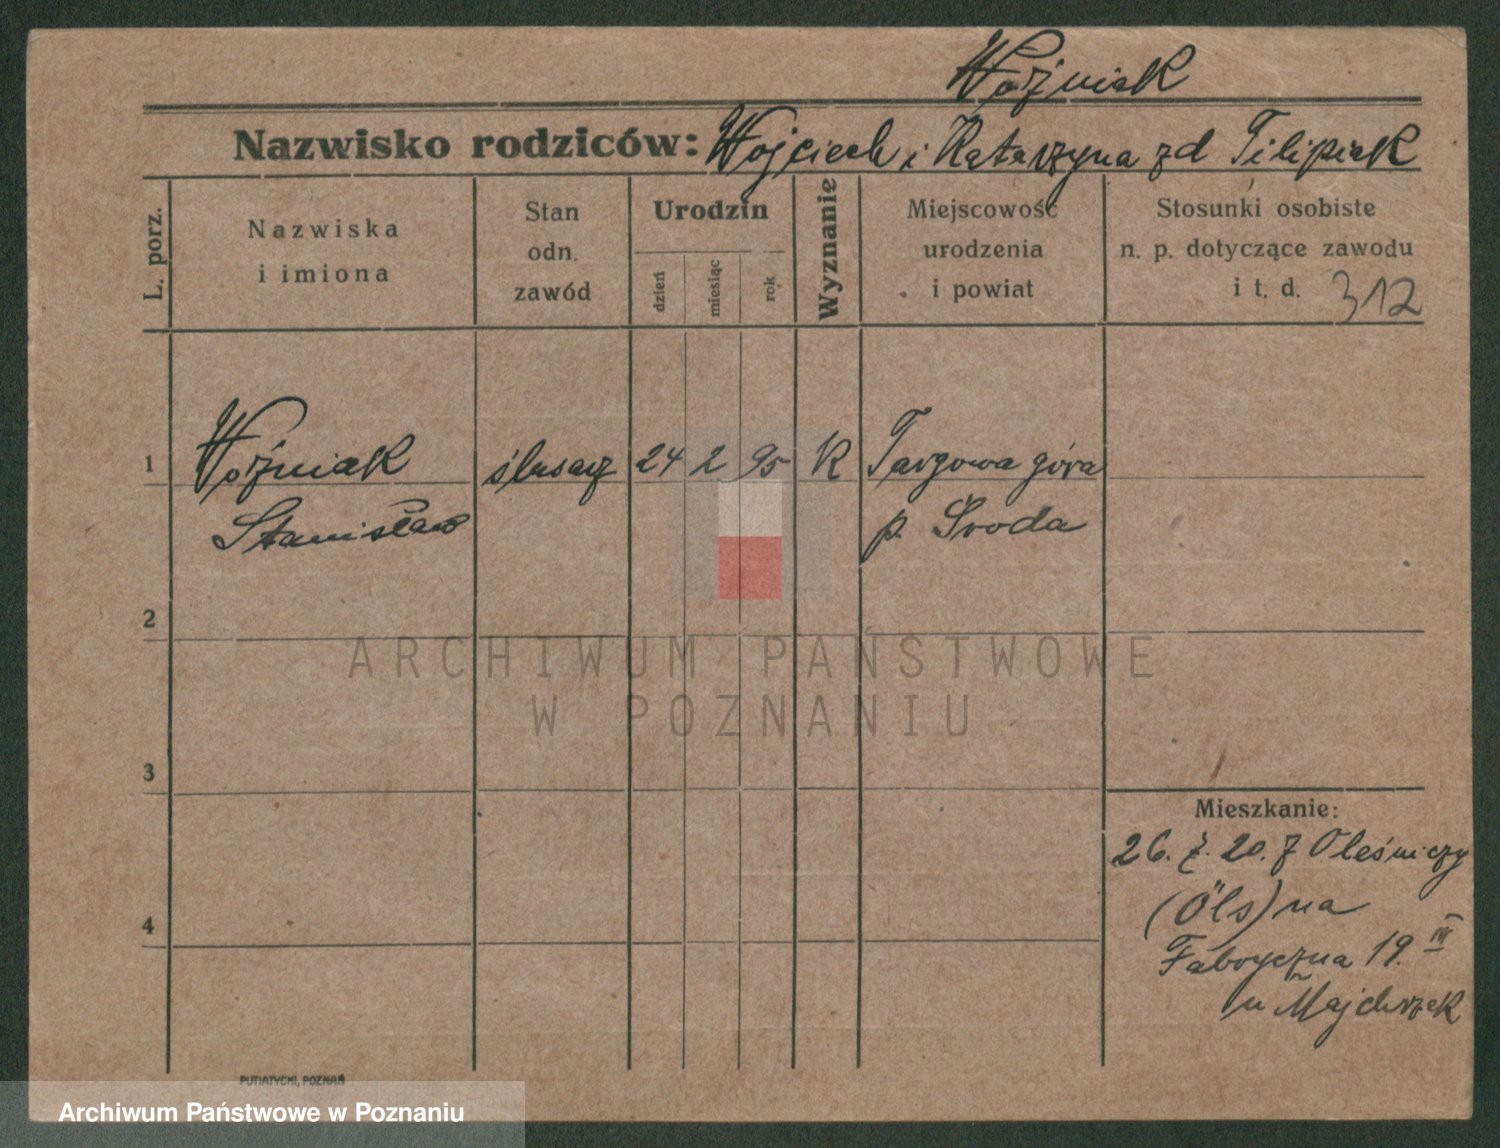 Woźniak
Nazwisko rodziców: Wojciech i Katarzyna zd Filipiak
L. porz.
Nazwiska
i imiona
Stan
odn.
zawód
Urodzin
dzień
miesiąc
rok
Wyznanie
Miejscowość
urodzenia
i powiat
Stosunki osobiste
n. p. dotyczące zawodu
i t. d. 312
1 Woźniak ślusarz 24 2 95 K Targowa góra
Stanisław p. Środa
2
ARCHIWUM PAŃSTWOWE
W POZNANIU
3
Mieszkanie:
26. 2. 20. z Oleśnicy
(Öls) na
4
Fabryczna 19. III
u Majchrzak
PUTIATYCKI, POZNAŃ
Archiwum Państwowe w Poznaniu